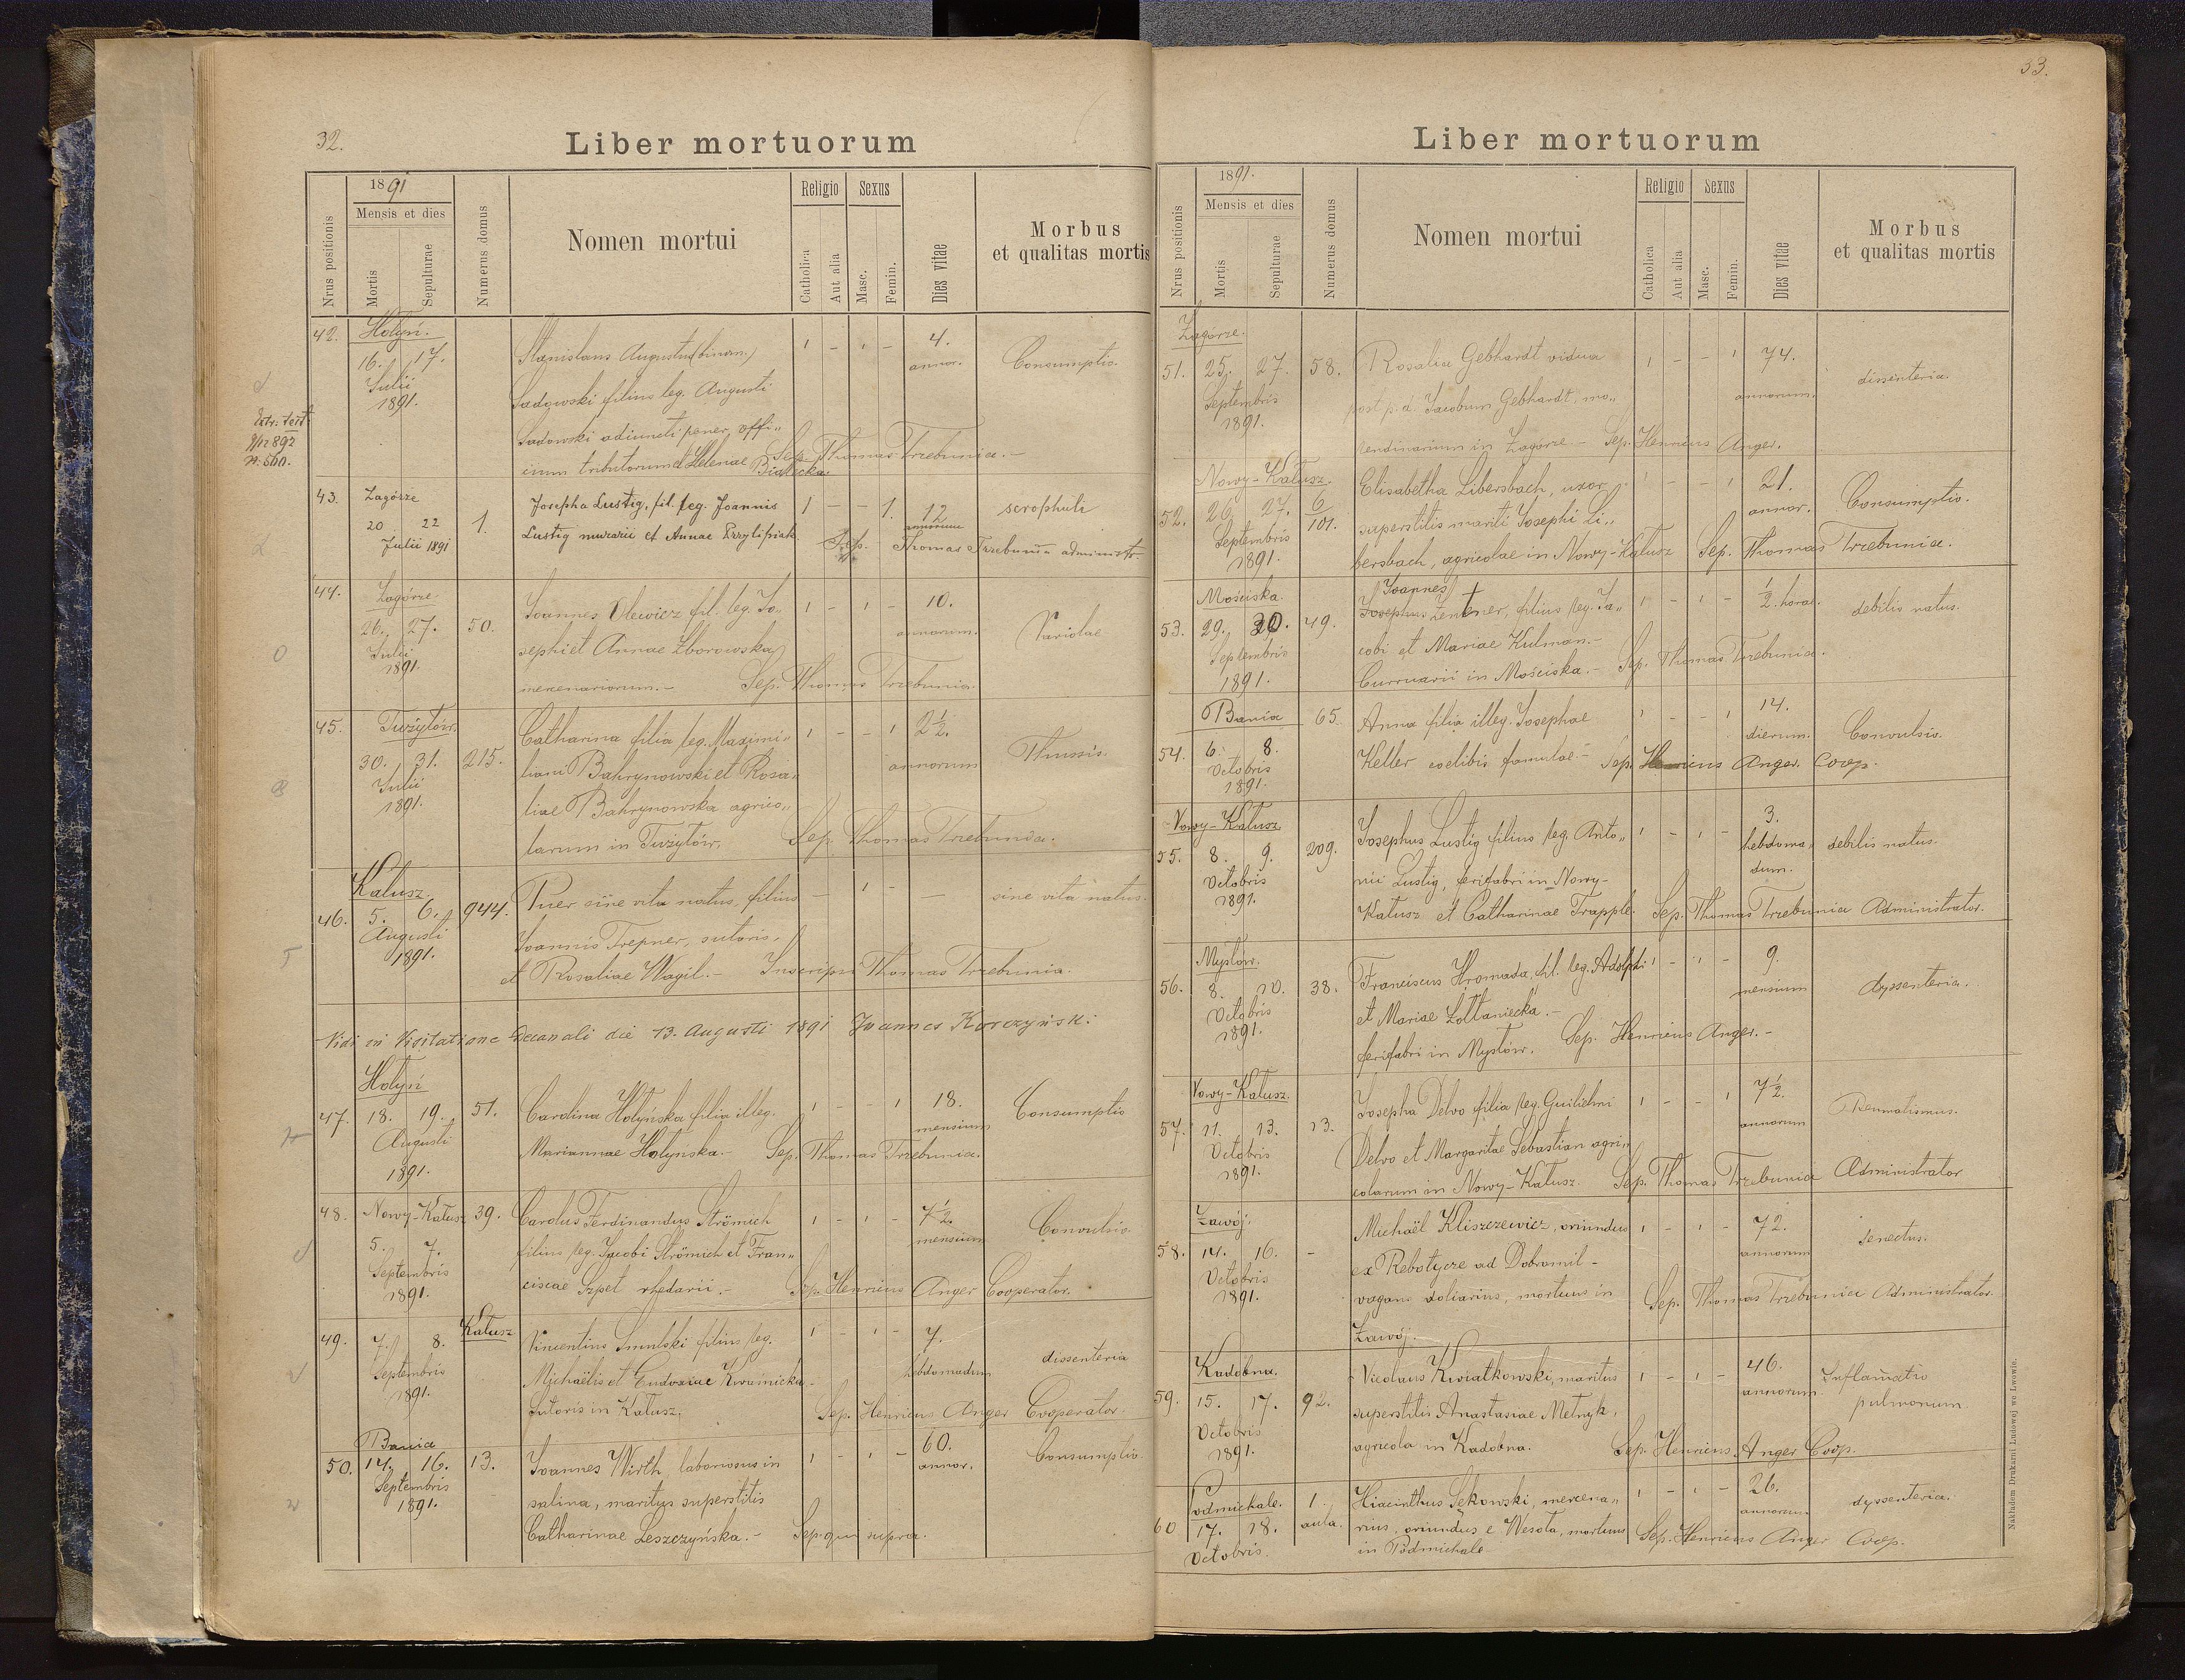 32.
Liber mortuorum
Nrus positionis
1891
Mensis et dies
Mortis
Sepulturae
Numerus domus
Nomen mortui
Religio
Catholica
Aut alia
Sexus
Masc.
Femin.
Dies vitae
Morbus
et qualitas mortis
42. Hołyń.
16. 17.
Julii
1891.
Stanislaus Augustus (binom.)
Sadowski filius leg. Augusti
Sadowski adiuncti pener. offi„
cium tributorum et Helenae Białecka.
1 - 1 -
4.
annor.
Consumptio.
Sep. Thomas Trzebunia.-
Extr: test.
9/12 892
N: 500.
43. Zagórze
20 22
Julii 1891
1.
Josepha Lustig, fil. leg. Joannis
Lustig murarii et Annae Przylipiak
1 - - 1.
12
annorum
scrophuli
Sep. Thomas Trzebunia administr.
44. Zagórze.
26. 27.
Julii
1891.
50.
Joannes Olewicz fil. leg. Jo„
sephi et Annae Zborowska
mercenariorum.-
1 - 1 -
10.
annorum.
Variolae
Sep. Thomas Trzebunia.
O
45. Tużyłów.
30. 31.
Julii
1891.
215.
Catharina filia leg. Maximi„
liani Bahrynowski et Rosa„
liae Bahrynowska agrico„
larum in Tużyłów.
1 - - 1
2½.
annorum
Thussis.
Sep. Thomas Trzebunia.
B
46. Kałusz.
5. 6.
Augusti
1891.
944.
Puer sine vita natus, filius
Joannis Trepner, sutoris,
et Rosaliae Wagil.-
- 1 - -
sine vita natus.
Inscripsi Thomas Trzebunia.
T
Vidi in Visitatione Decanali die 13. Augusti 1891 Joannes Korczyński
47. Hołyń
18. 19.
Augusti
1891.
51.
Carolina Hołyńska filia illeg.
Mariannae Hołyńska.-
1 - - 1
18.
mensium
Consumptio
Sep. Thomas Trzebunia.
H
48. Nowy-Kałusz
5. 7.
Septembris
1891.
39.
Carolus Ferdinandus Strömich
filius leg. Jacobi Strömich et Fran„
ciscae Szpet rhedarii.-
1 - 1 -
7½.
mensium
Convulsio
Sep. Henricus Anger Cooperator.
49. Kałusz
7. 8.
Septembris
1891.
Vincentius Smulski filius leg.
Michaëlis et Eudoxiae Kwaśnicka-
Sutoris in Kałusz.
1 - 1 -
7.
hebdomadum
dissenteria
Sep. Henricus Anger Cooperator.
50. Bania
14. 16.
Septembris
1891.
13.
Joannes Wirth, laboriosus in
salina, maritus superstitis
Catharinae Leszczyńska.-
1 - 1 -
60.
annor.
Consumptio.
Sep. qui supra.
W
33.
Liber mortuorum
Nrus positionis
1891.
Mensis et dies
Mortis
Sepulturae
Numerus domus
Nomen mortui
Religio
Catholica
Aut alia
Sexus
Masc.
Femin.
Dies vitae
Morbus
et qualitas mortis
Zagórze.
51. 25. 27.
Septembris
1891.
58.
Rosalia Gebhardt vidua
post p. d. Jacobum Gebhardt, mo„
lendinarium in Zagórze-
1 - - 1
74.
annorum.
dissenteria.
Sep. Henricus Anger.
Nowy-Kałusz.
52. 26. 27.
Septembris
1891.
6
101.
Elisabetha Libersbach, uxor
superstitis mariti Josephi Li„
bersbach, agricolae in Nowy-Kałusz
1 - - 1
21.
annor.
Consumptio.
Sep. Thomas Trzebunia.
Mościska.
53. 29. 30.
Septembris
1891.
49.
Joannes
Josephus Zentner, filius leg. Ja„
cobi et Mariae Kulman.-
Curruarii in Mościska.-
1 - 1 -
½. horae.
debilis natus.
Sep. Thomas Trzebunia.
Bania
54. 6. 8.
Octobris
1891.
65.
Anna filia illeg. Josephae
Keller coelibis famulae.-
1 - - 1
14.
dierum.
Convulsio.
Sep. Henricus Anger. Coop.
Nowy-Kałusz
55. 8. 9.
Octobris
1891.
209.
Josephus Lustig filius leg. Anto„
nii Lustig, ferifabri in Nowy-
Kałusz et Catharinae Trapple.
1 - 1 -
3.
hebdoma„
dum.
debilis natus.
Sep. Thomas Trzebunia Administrator.
Mysłów.
56. 8. 10.
Octobris
1891.
38.
Franciscus Hromada, fil. leg. Adolphi
et Mariae Żołtaniecka.-
ferifabri in Mysłów.
1 - 1 -
9.
mensium
dyssenteria.
Sep. Henricus Anger.-
Nowy-Kałusz.
57. 11. 13.
Octobris
1891.
13.
Josepha Delvo filia leg. Guilielmi
Delvo et Margaritae Sebastian agri„
colarum in Nowy-Kałusz.
1 - - 1
7½.
annorum
Reumatismus.
Sep. Thomas Trzebunia Administrator
Zawój.
58. 14. 16.
Octobris
1891.
-
Michaël Kliszczewicz, oriundus
ex Rebotycze ad Dobromil-
vagans doliarius, mortuus in
Zawój.
1 - 1 -
72.
annorum
senectus.
Sep. Thomas Trzebunia Administrator.
Kadobna.
59. 15. 17.
Octobris
1891.
92.
Nicolaus Kwiatkowski, maritus
superstitis Anastasiae Metnyk,
agricola in Kadobna.
1 - 1 -
46.
annorum.
Inflamatio
pulmonum.
Sep. Henricus Anger Coop.
Podmichale.
60 17. 18.
Octobris.
1.
aula.
Hiacinthus Sękowski, mercena„
rius, oriundus e Wesoła, mortuus
in Podmichale
1 - 1 -
26.
annorum.
dyssenteria.
Sep. Henricus Anger Coop.
Nakładem Drukarni Ludowej we Lwowie.